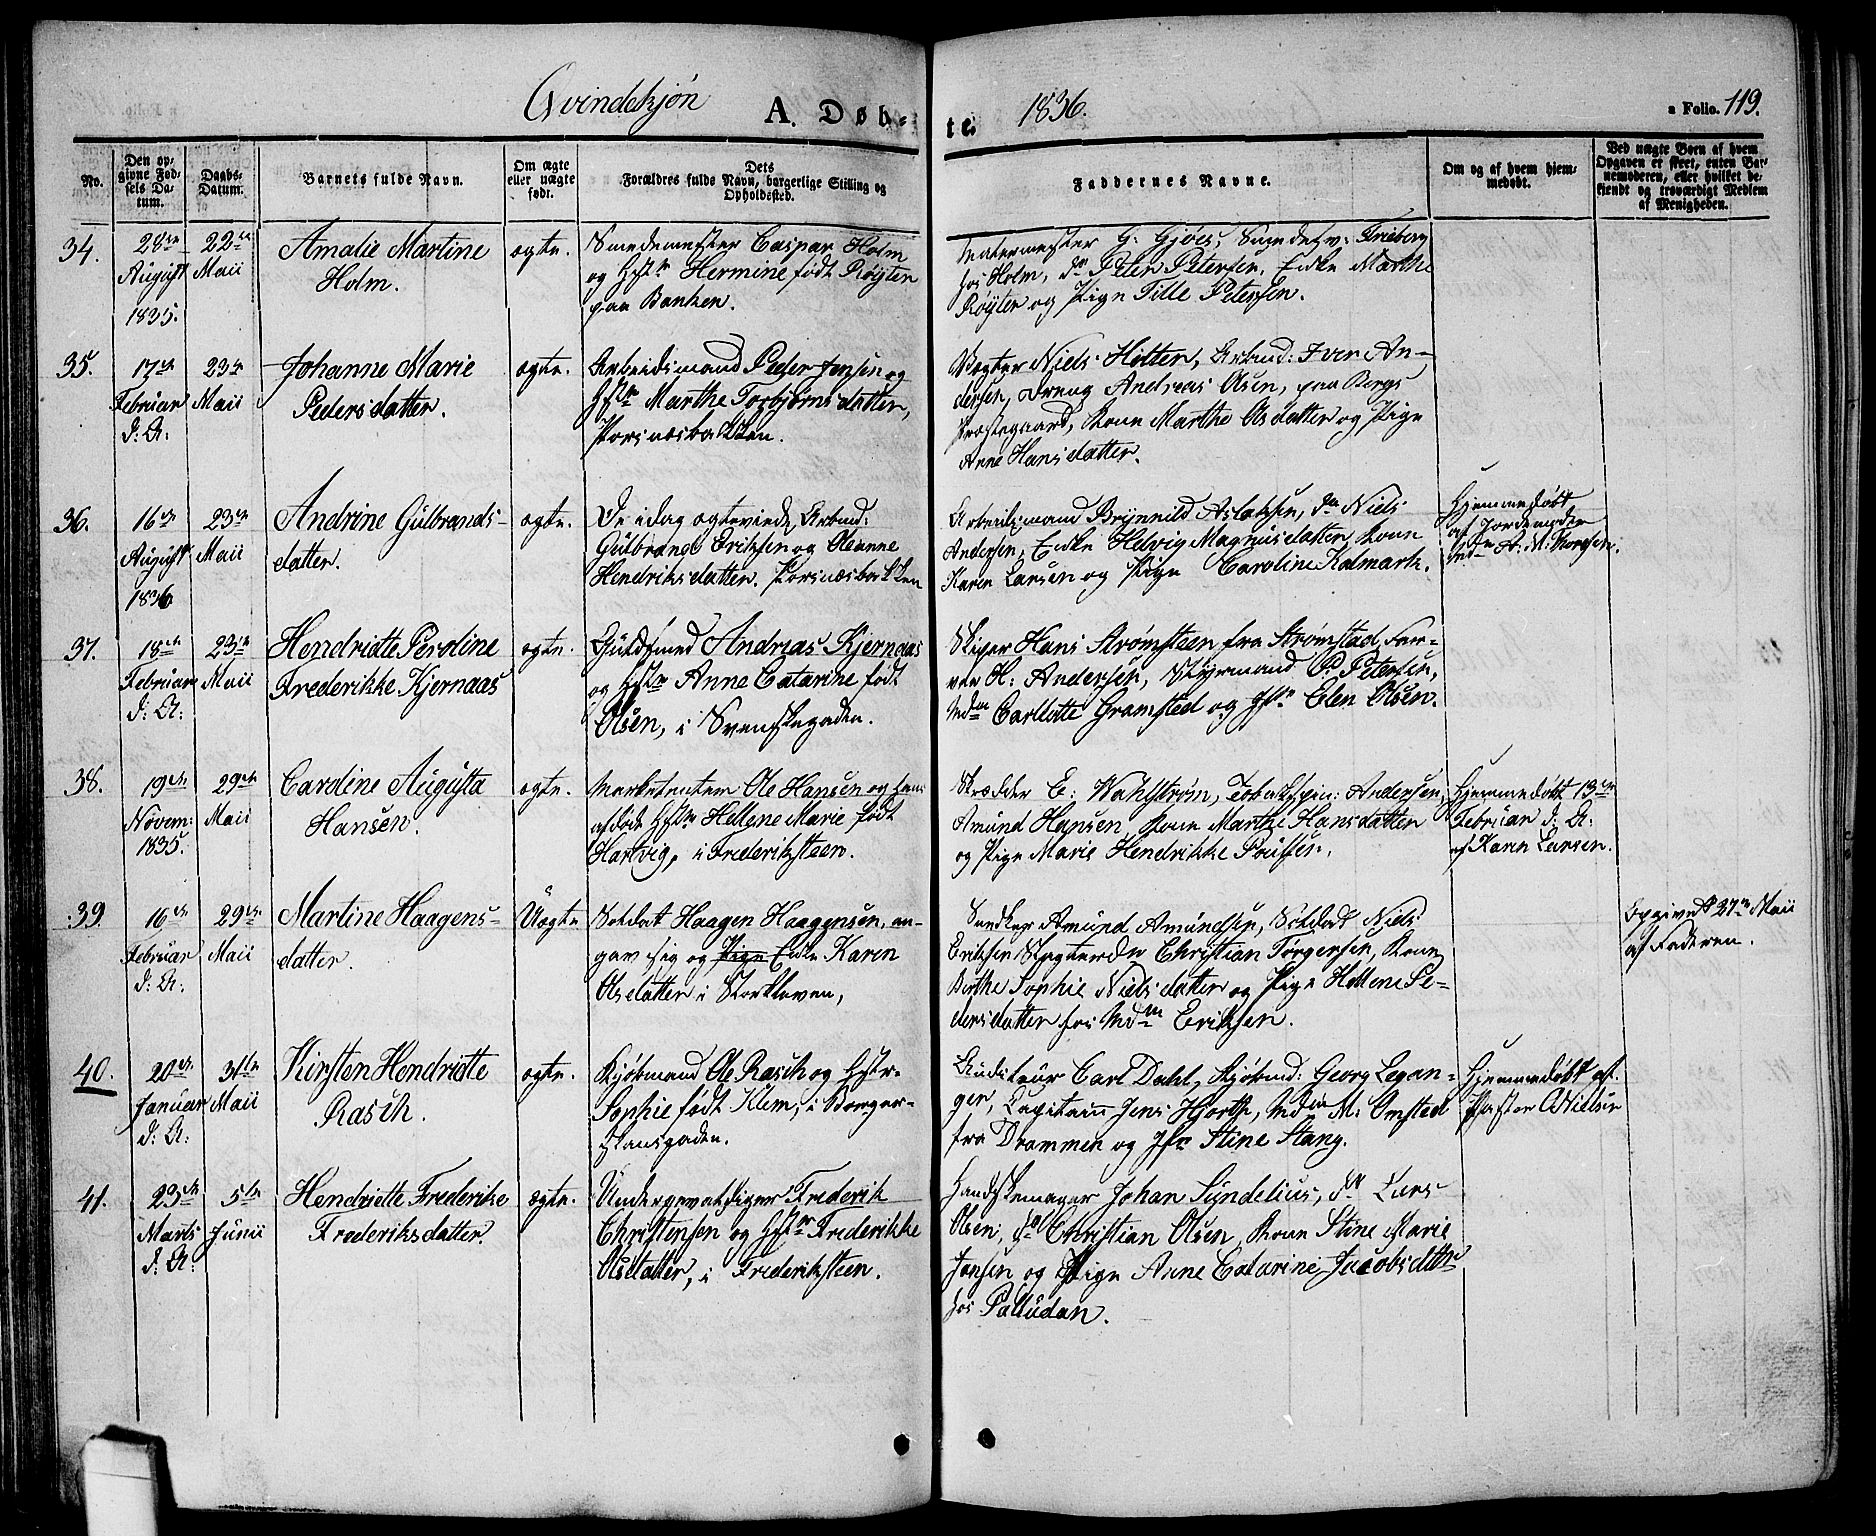 Qvindekjøn
A. Døb-
te.
1836.
a Folio. 119.
No.
Den op-
givne Fød-
sels Da-
tum.
Daabs-
Datum.
Barnets fulde Navn.
Om ægte
eller uægte
født.
Dets
Forældres fulde Navn, borgerlige Stilling og
Opholdssted.
Faddernes Navne.
Om og af hvem hjem-
medøbt.
Ved uægte Børn af hvem
Opgaven er skeet, enten Bar-
nemoderen, eller hvilket be-
kjendt og troværdigt Medlem
af Menigheden.
34.
28de
August
1835.
22de
Maii
Amalie Martine
Holm.
ægte.
Smedemester Caspar Holm
og Hstr Hermine født Røyter
paa Banken.
G. Gjøes, Smedesv: Frieberg
hos Holm, do Peter Petersen, Enke Marthe
Røyter og Pige Tille Petersen.
35.
17de
Februar
d: A:
23de
Maii
Johanne Marie
Pedersdatter.
ægte.
Arbeidsmand Peder Jensen og
Hstr Marthe Torbjørnsdatter,
Porsnæsbakken.
Vægter Niels Holter, Arbmd: Iver An-
dersen, Dreng Andreas Olsen, paa Bergs
Præstegaard, Kone Marthe Olsdatter og Pige
Anne Hansdatter.
36.
16de
August
1836
23de
Maii
Andrine Gulbrands-
datter.
ægte.
De idag ægteviede Arbmd:
Gulbrand Eriksen og Oleanne
Hendriksdatter. Porsnæsbakken
Arbeidsmand Brynnild Aslaksen, do Niels
Andersen, Enke Helvig Magnusdatter, Kone
Karen Larsen og Pige Caroline Kalmark.
Hjemmedøbt
af Jordemoder
37.
18de
Februar
d: A:
23de
Maii
Hendriette Peroline
Frederikke Kjernaas
ægte.
Guldsmed Andreas Kjernaas
og Hstr Anne Catarine født
Olsen, i Svenskegaden.
Skiper Hans Strømsteen fra Strømstad, Far-
ver H: Andersen, Styrmand P. Petersen,
Mdm Carllotte Gramsted og Jfr Elen Olsen.
38.
19de
Novem:
1835.
29de
Maii
Caroline Augusta
Hansen.
ægte.
Marketenter Ole Hansen og hans
afdøde Hstr Hellene Marie født
Hartvig, i Frederiksteen.
Skrædder E: Wahlstrøm, Tobakspin: Andersen,
Amund Hansen, Kone Marthe Hansdatter
og Pige Marie Hendrikke Poulsen.
Hjemmedøbt 13de
Februar d: A:
af Karen Larsen.
39.
16de
Februar
d: A:
29de
Maii
Martine Haagens-
datter.
Uægte
Soldat Haagen Haagensen, an-
gav sig og Pige Enke Karen
Olsdatter i Storkleven,
Amund Amundsen, Soldat Niels
Eriksen Slagter do Christian Tørgersen, Kone
Berthe Sophie Nielsdatter og Pige Hellene Pe-
dersdatter hos Mdm Eriksen.
Opgivet 27de Maii
af Faderen.
40.
20de
Januar
d: A:
31te
Maii
Kirsten Hendriette
Rasch.
ægte.
Kjøbmand Ole Rasch og Hstr.
Sophie født Klem, i Borger-
skansgaden.
Auditeur Carl Dahl, Kjøbmd: Georg Legan-
ger, Capitain Jens Hjorth, Mdm M: Omsted
fra Drammen og Jfr Stine Stang.
Hjemmedøbt af
Pastor A Nielsen
41.
23de
Marts
d: A:
5te
Junii
Hendriette Frederike
Frederiksdatter.
ægte.
Undergevaldiger Frederik
Christensen og Hstr Frederikke
Olsdatter, i Frederiksteen.
Handskemager Johan Sundelius, do Lars
Olsen, do Christian Olsen, Kone Stine Marie
Jensen og Pige Anne Catarine Jacobsdatter
hos Palludan.